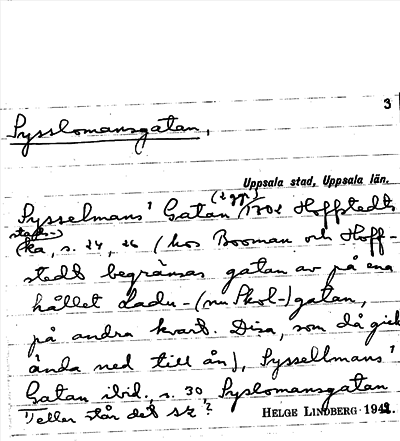 3
Sysslomansgatan,
Uppsala stad, Uppsala län.
(2 ggr)
Sysselmans¹ Gatan 1702 Hoffstedts
ka, s. 24, 26 (hos Booman och Hoff-
stedt begränsas gatan av på ena
hållet Ladu-(nu Skol-)gatan,
på andra kvart. Disa, som då gick
ända ned till ån), Syssellmans¹
Gatan ibid. s. 30, Syslomansgatan
¹) eller står det sz?
HELGE LINDBERG 1942.